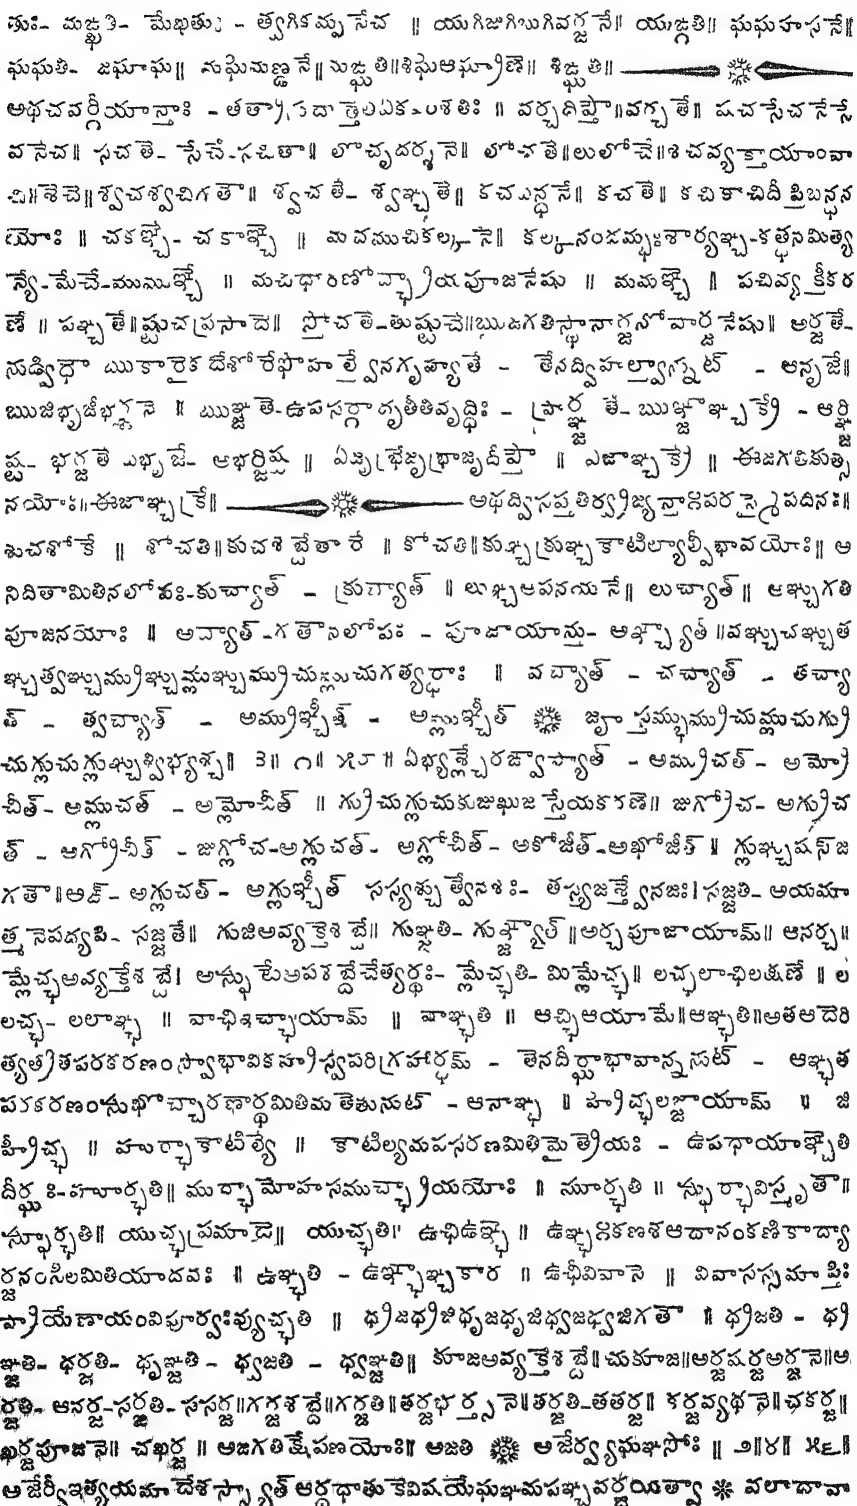 తుః- మఙ్ఖతి- మేఖతుః - త్వగికమ్పనేచ ॥ యుగిజుగిబుగివర్జనే॥ యుఙ్గతి॥ ఘఘహసనే॥
ఘఘతి- జఘాఘ॥ మఘిమణ్డనే॥ మఙ్ఘతి॥శిఘిఆఘ్రాణే॥ శిఙ్ఘతి॥
అథచవర్గీయాన్తాః - తత్రానుదాత్తేతఏకవింశతిః ॥ వర్చదీప్తౌ॥వర్చతే॥ షచసేచనేసే
వనేచ॥ సచతే- సేచే-సచితా॥ లోచృదర్శనే॥ లోచతే॥లులోచే॥శచవ్యక్తాయాంవా
చి॥శేచే॥శ్వచశ్వచిగతౌ॥ శ్వచతే- శ్వఞ్చతే॥ కచబన్ధనే॥ కచతే॥ కచికాచిదీప్తిబన్ధన
యోః ॥ చకఞ్చే- చకాఞ్చే ॥ మచముచికల్కనే॥ కల్కనందమ్భఃశార్యఞ్చ-కత్థనమిత్య
న్యే-మేచే-ముముఞ్చే ॥ మచిధారణోచ్ఛ్రాయపూజనేషు ॥ మమఞ్చే ॥ పచివ్యక్తీకర
ణే ॥ పఞ్చతే॥ష్టుచప్రసాదే॥ స్తోచతే-తుష్టుచే॥ఋజగతిస్థానార్జనోపార్జనేషు॥ అర్జతే-
నుడ్విధౌ ఋకారైకదేశోరేఫోహల్త్వేనగృహ్యతే - తేనద్విహల్త్వాన్నుట్ - ఆనృజే॥
ఋజిభృజీభర్జనే ॥ ఋఞ్జతే-ఉపసర్గాదృతీతివృద్ధిః - ప్రార్ఞ్జతే- ఋఞ్జాఞ్చక్రే - ఆర్ఞ్జి
ష్ట- భర్జతే బభృజే- అభర్జిష్ట ॥ ఏజృభ్రేజృభ్రాజృదీప్తౌ ॥ ఎజాఞ్చక్రే ॥ ఈజగతికుత్స
నయోః॥ఈజాఞ్చక్రే॥ అథద్విసప్తతిర్వ్రజ్యన్తాఃపరస్మైపదినః॥
శుచశోకే ॥ శోచతి॥కుచశబ్దేతారే ॥ కోచతి॥కుఞ్చక్రుఞ్చకౌటిల్యాల్పీభావయోః॥ అ
నిదితామితినలోపః-కుచ్యాత్ - క్రుచ్యాత్ ॥ లుఞ్చఅపనయనే॥ లుచ్యాత్॥ అఞ్చుగతి
పూజనయోః ॥ అచ్యాత్-గతౌనలోపః - పూజాయాన్తు- అఞ్చ్యాత్ ॥వఞ్చుచఞ్చుత
ఞ్చుత్వఞ్చుమ్రుఞ్చుమ్లుఞ్చుమ్రుచుమ్లుచుగత్యర్థాః ॥ వచ్యాత్ - చచ్యాత్ - తచ్యా
త్ - త్వచ్యాత్ - అమ్రుఞ్చీత్ - అమ్లుఞ్చీత్ ❋ జౄస్తమ్భుమ్రుచుమ్లుచుగ్రు
చుగ్లుచుగ్లుఞ్చుశ్విభ్యశ్చ॥ ३॥ ౧॥ ५८ ॥ ఏభ్యశ్చ్లేరఙ్వాస్యాత్ - అమ్రుచత్- అమ్రో
చీత్- అమ్లుచత్ - అమ్లోచీత్ ॥ గ్రుచుగ్లుచుకుజుఖుజుస్తేయకరణే॥ జుగ్రోచ- అగ్రుచ
త్ - అగ్రోచీత్ - జుగ్లోచ-అగ్లుచత్- అగ్లోచీత్-అకోజీత్-అఖోజీత్ ॥ గ్లుఞ్చుషస్జ
గతౌ॥అఙ్- అగ్లుచత్- అగ్లుఞ్చీత్ సస్యశ్చుత్వేనశః- తస్యజశ్త్వేనజః।సజ్జతి- ఆయమా
త్మనేపద్యపి- సజ్జతే॥ గుజిఅవ్యక్తేశబ్దే॥ గుఞ్జతి- గుఞ్జ్యాత్॥అర్చపూజాయామ్॥ ఆనర్చ॥
మ్లేచ్ఛఅవ్యక్తేశబ్దే। అస్ఫుటేఅపశబ్దేచేత్యర్థః- మ్లేచ్ఛతి- మిమ్లేచ్ఛ॥ లచ్ఛలాఛిలక్షణే ॥ ల
లచ్ఛ- లలాఞ్ఛ ॥ వాఛిఇచ్ఛాయామ్ ॥ వాఞ్ఛతి ॥ ఆచ్ఛిఆయామే॥ఆఞ్ఛతి॥అతఆదేరి
త్యత్రతపరకరణంస్వాభావికహ్రస్వపరిగ్రహార్థమ్ - తేనదీర్ఘాభావాన్ననుట్ - ఆఞ్ఛత
పరకరణంసుఖోచ్చారణార్థమితిమతేతునుట్ - ఆనాఞ్ఛ ॥ హ్రీచ్ఛలజ్జాయామ్ ॥ జి
హ్రీచ్ఛ ॥ హుర్ఛాకౌటిల్యే ॥ కౌటిల్యమపసరణమితిమైత్రేయః - ఉపధాయాఞ్చేతి
దీర్ఘః-హూర్ఛతి॥ ముర్ఛామోహసముచ్ఛ్రాయయోః ॥ మూర్ఛతి ॥ స్ఫుర్ఛావిస్మృతౌ॥
స్ఫూర్ఛతి॥ యుచ్ఛప్రమాదే॥ యుచ్ఛతి॥ ఉఛిఉఞ్ఛే॥ ఉఞ్ఛఃకణశఆదానంకణికాద్యా
ర్జనంసిలమితియాదవః ॥ ఉఞ్ఛతి - ఉఞ్ఛాఞ్చకార ॥ ఉఛీవివాసే ॥ వివాసస్సమాప్తిః
ప్రాయేణాయంవిపూర్వఃవ్యుచ్ఛతి ॥ ధ్రజధ్రజిధృజధృజిధ్వజధ్వజిగతౌ ॥ ధ్రజతి - ధ్ర
ఞ్జతి- ధర్జతి- ధృఞ్జతి - ధ్వజతి - ధ్వఞ్జతి॥ కూజఅవ్యక్తేశబ్దే॥చుకూజ॥అర్జషర్జఅర్జనే॥అ
ర్జతి- ఆనర్జ-సర్జతి- ససర్జ॥గర్జశబ్దే॥గర్జతి॥తర్జభర్త్సనే॥తర్జతి-తతర్జ॥ కర్జవ్యథనే॥చకర్జ॥
ఖర్జపూజనే॥ చఖర్జ ॥ అజగతిక్షేపణయోః॥ అజతి ❋ అజేర్వ్యఘఞపోః ॥ ౨॥౪॥ ५६॥
అజేర్వీఇత్యయమాదేశస్స్యాత్ ఆర్ధధాతుకేవిషయేఘఞమపఞ్చవర్జయిత్వా ❋ వలాదావా